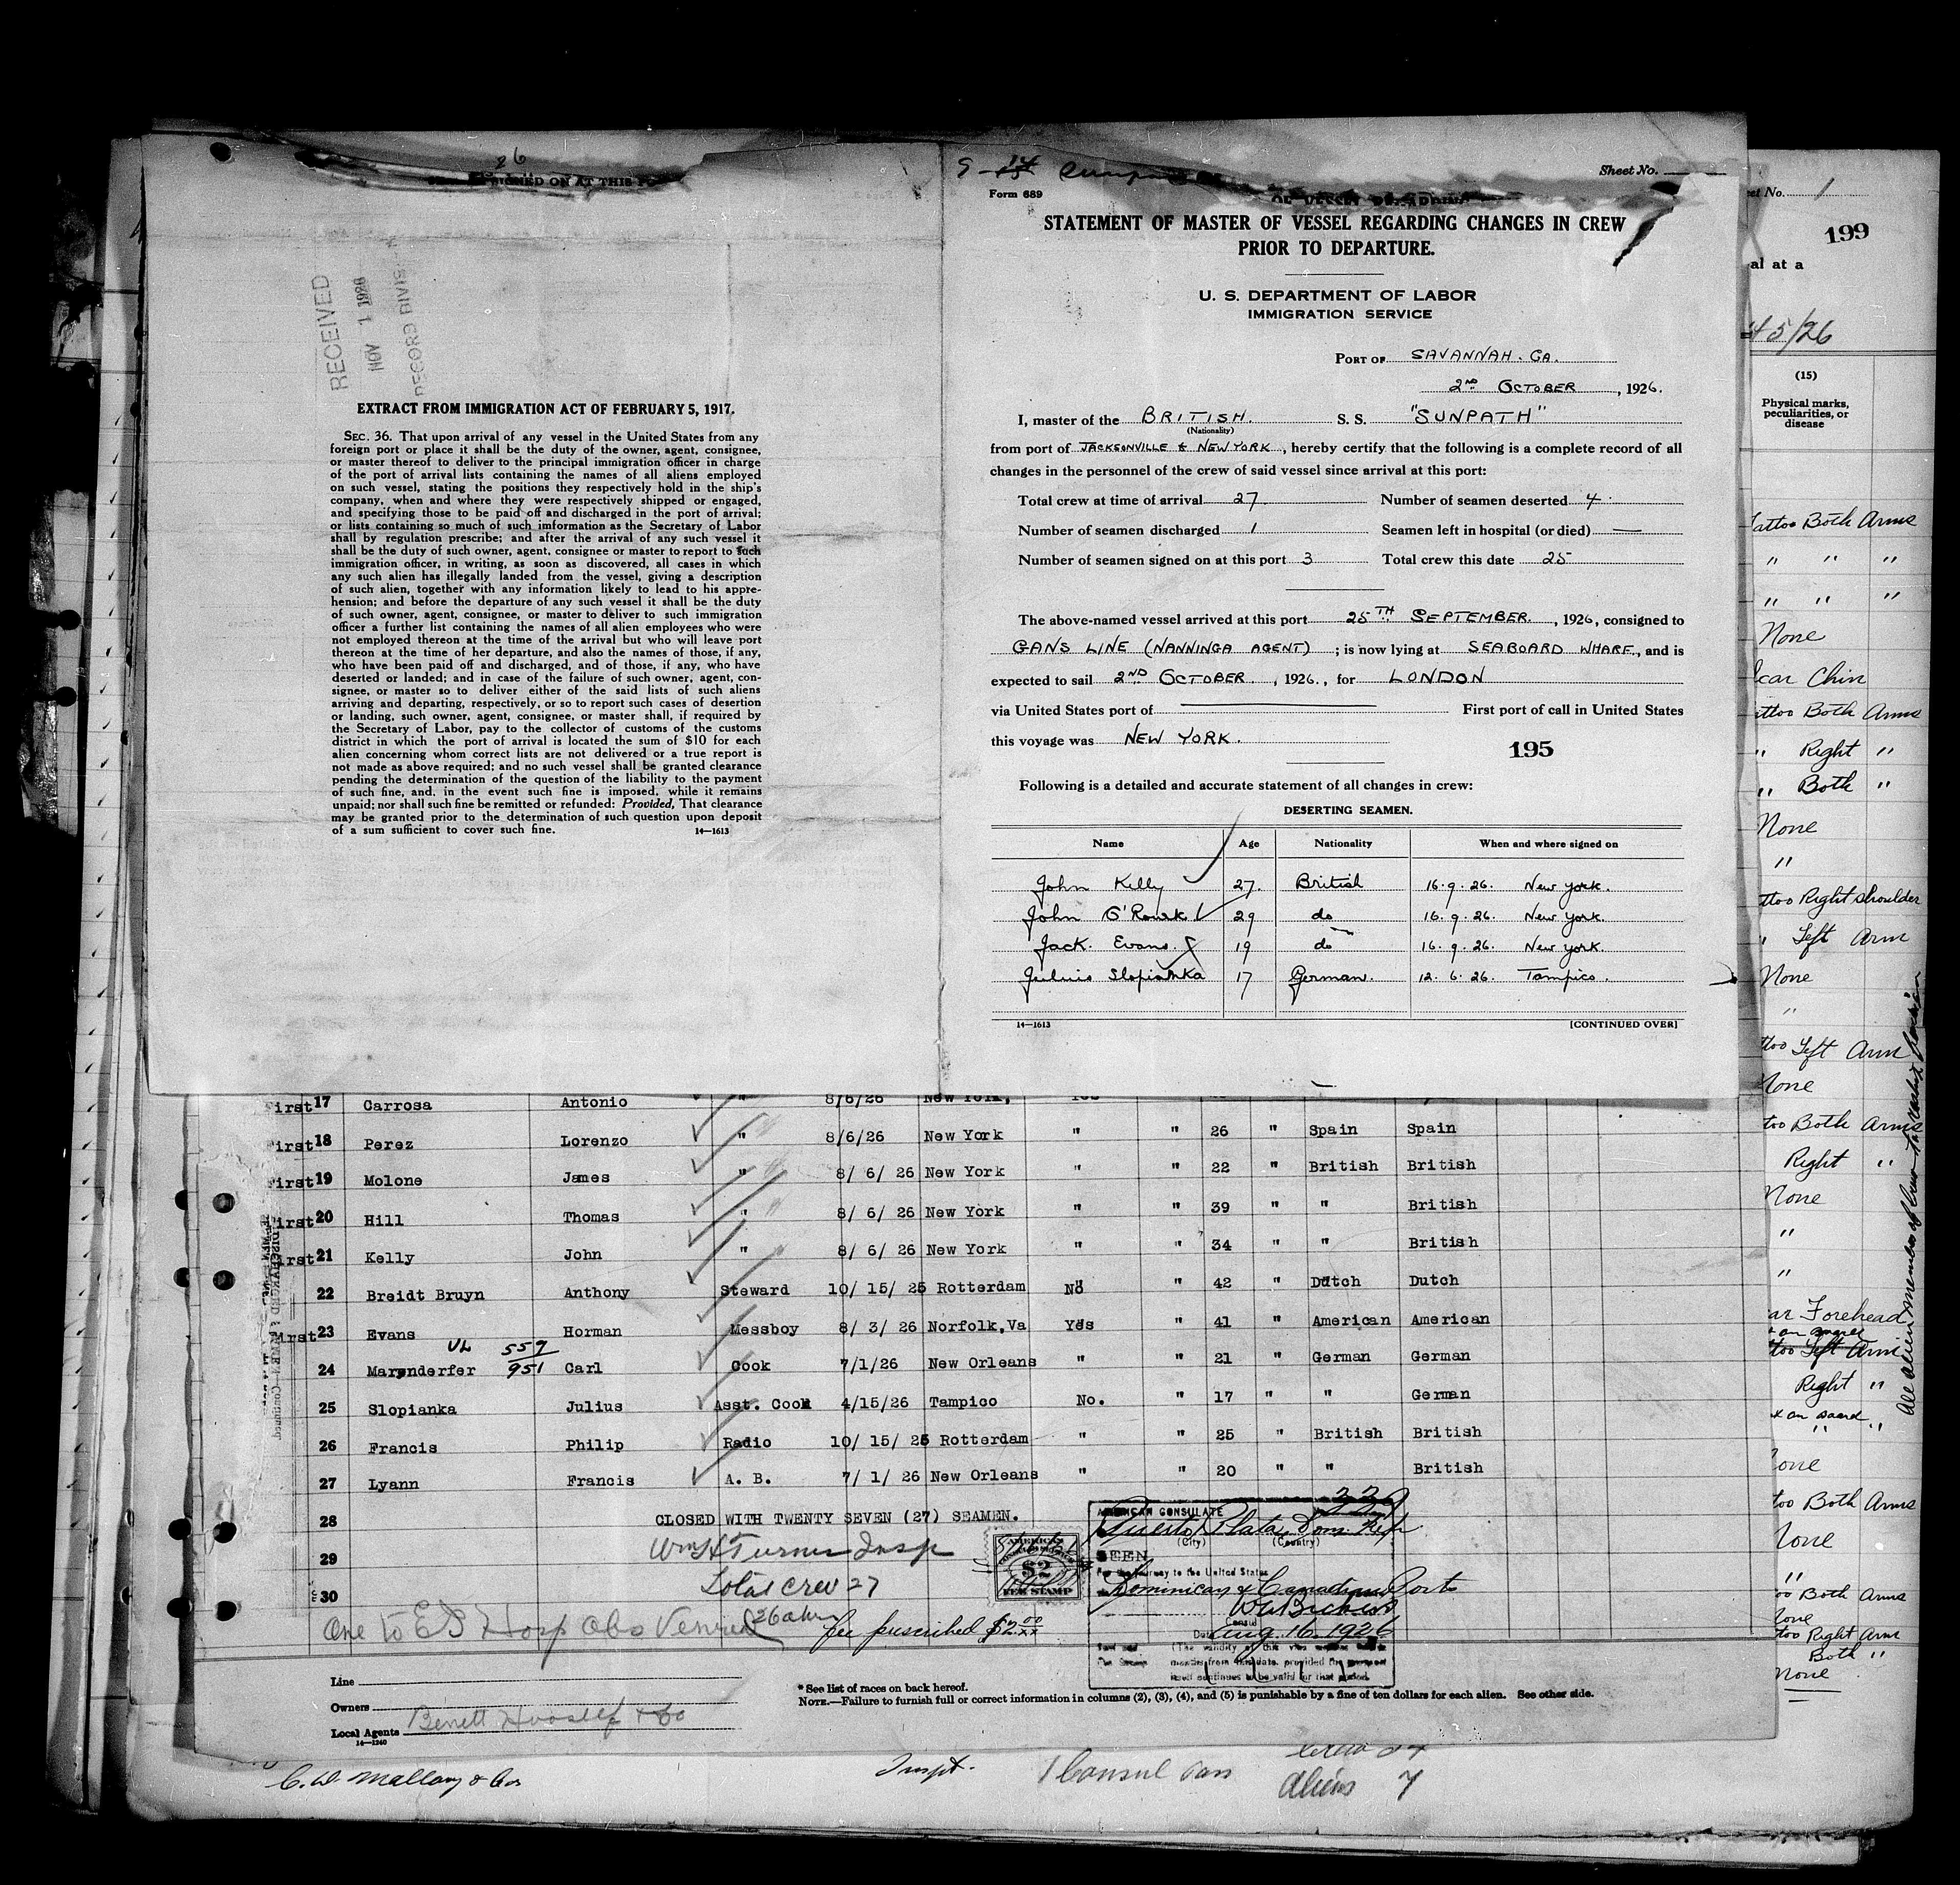 26
SIGNED ON AT THIS PO
RECEIVED
NOV 1 1926
RECORD DIVISION
EXTRACT FROM IMMIGRATION ACT OF FEBRUARY 5, 1917.
SEC. 36. That upon arrival of any vessel in the United States from any
foreign port or place it shall be the duty of the owner, agent, consignee,
or master thereof to deliver to the principal immigration officer in charge
of the port of arrival lists containing the names of all aliens employed
on such vessel, stating the positions they respectively hold in the ship's
company, when and where they were respectively shipped or engaged,
and specifying those to be paid off and discharged in the port of arrival;
or lists containing so much of such imformation as the Secretary of Labor
shall by regulation prescribe; and after the arrival of any such vessel it
shall be the duty of such owner, agent, consignee or master to report to such
immigration officer, in writing, as soon as discovered, all cases in which
any such alien has illegally landed from the vessel, giving a description
of such alien, together with any information likely to lead to his appre-
hension; and before the departure of any such vessel it shall be the duty
of such owner, agent, consignee, or master to deliver to such immigration
officer a further list containing the names of all alien employees who were
not employed thereon at the time of the arrival but who will leave port
thereon at the time of her departure, and also the names of those, if any,
who have been paid off and discharged, and of those, if any, who have
deserted or landed; and in case of the failure of such owner, agent, con-
signee, or master so to deliver either of the said lists of such aliens
arriving and departing, respectively, or so to report such cases of desertion
or landing, such owner, agent, consignee, or master shall, if required by
the Secretary of Labor, pay to the collector of customs of the customs
district in which the port of arrival is located the sum of $10 for each
alien concerning whom correct lists are not delivered or a true report is
not made as above required; and no such vessel shall be granted clearance
pending the determination of the question of the liability to the payment
of such fine, and, in the event such fine is imposed, while it remains
unpaid; nor shall such fine be remitted or refunded: Provided, That clearance
may be granted prior to the determination of such question upon deposit
of a sum sufficient to cover such fine. 14—1613
Sheet No.
Form 689
STATEMENT OF MASTER OF VESSEL REGARDING CHANGES IN CREW
PRIOR TO DEPARTURE.
U. S. DEPARTMENT OF LABOR
IMMIGRATION SERVICE
PORT OF SAVANNAH. GA.
2ND OCTOBER, 1926.
I, master of the BRITISH. S. S. "SUNPATH"
(Nationality)
from port of JACKSONVILLE & NEW YORK, hereby certify that the following is a complete record of all
changes in the personnel of the crew of said vessel since arrival at this port:
Total crew at time of arrival 27. Number of seamen deserted 4
Number of seamen discharged 1 Seamen left in hospital (or died) —
Number of seamen signed on at this port 3 Total crew this date 25
The above-named vessel arrived at this port 25TH SEPTEMBER., 1926, consigned to
GANS LINE (NANNINGA AGENT); is now lying at SEABOARD WHARF, and is
expected to sail 2ND OCTOBER, 1926., for LONDON
via United States port of ——— First port of call in United States
this voyage was NEW YORK.
195
Following is a detailed and accurate statement of all changes in crew:
DESERTING SEAMEN.
Name Age Nationality When and where signed on
John Kelly 27. British 16.9.26. New York.
John O'Rourk 29 do 16.9.26. New York.
Jack. Evans. 19 do 16.9.26. New York.
Julius Slopianka 17 German. 12.6.26. Tampico.
14—1613 [CONTINUED OVER]
First 17 Carrosa Antonio " 8/6/26 New York,
First 18 Perez Lorenzo " 8/6/26 New York " " 26 " Spain Spain
First 19 Molone James " 8/ 6/ 26 New York " " 22 " British British
First 20 Hill Thomas " 8/ 6/ 26 New York " " 39 " " British
First 21 Kelly John " 8/ 6/ 26 New York " " 34 " " British
22 Breidt Bruyn Anthony Steward 10/ 15/ 25 Rotterdam No " 42 " Dutch Dutch
First 23 Evans Horman Messboy 8/ 3/ 26 Norfolk,Va Yes " 41 " American American
UL 559
24 Marynderfer 951 Carl Cook 7/1/26 New Orleans " " 21 " German German
25 Slopianka Julius Asst. Cook 4/15/26 Tampico No. " 17 " " German
26 Francis Philip Radio 10/ 15/ 25 Rotterdam " " 25 " British British
27 Lyann Francis A. B. 7/ 1/ 26 New Orleans " " 20 " " British
28 CLOSED WITH TWENTY SEVEN (27) SEAMEN.
29 Wm H Turner Insp
30 Total Crew 27
One to E I Hosp Obs
fee prescribed $2.00
AMERICAN
$2
FEE STAMP
AMERICAN CONSULATE
Puerto Plata, Dom. Rep.
(City) (Country)
SEEN
For the journey to the United States
Dominican & Canadian Ports
Consul
Date Aug. 16. 1926
Line
Owners
Local Agents
14—1240
* See list of races on back hereof.
NOTE.—Failure to furnish full or correct information in columns (2), (3), (4), and (5) is punishable by a fine of ten dollars for each alien. See other side.
C. D. Mallory & Co
Inspt.
1 Consul
Aliens 7
et No. 1
199
al at a
5/26
(15)
Physical marks,
peculiarities, or
disease
Tattoo Both Arms
" " "
" " "
None
Scar Chin
attoo Both Arms
" Right "
" Both "
None
"
ttoo Right shoulder
" Left Arm
None
"
ttoo Left Arm
None
too Both Arms
Right "
None
"
"
ar Forehead
too Left Arm
Right "
None
too Both Arms
None
"
oo Both Arms
None
too Right Arm
Both "
None